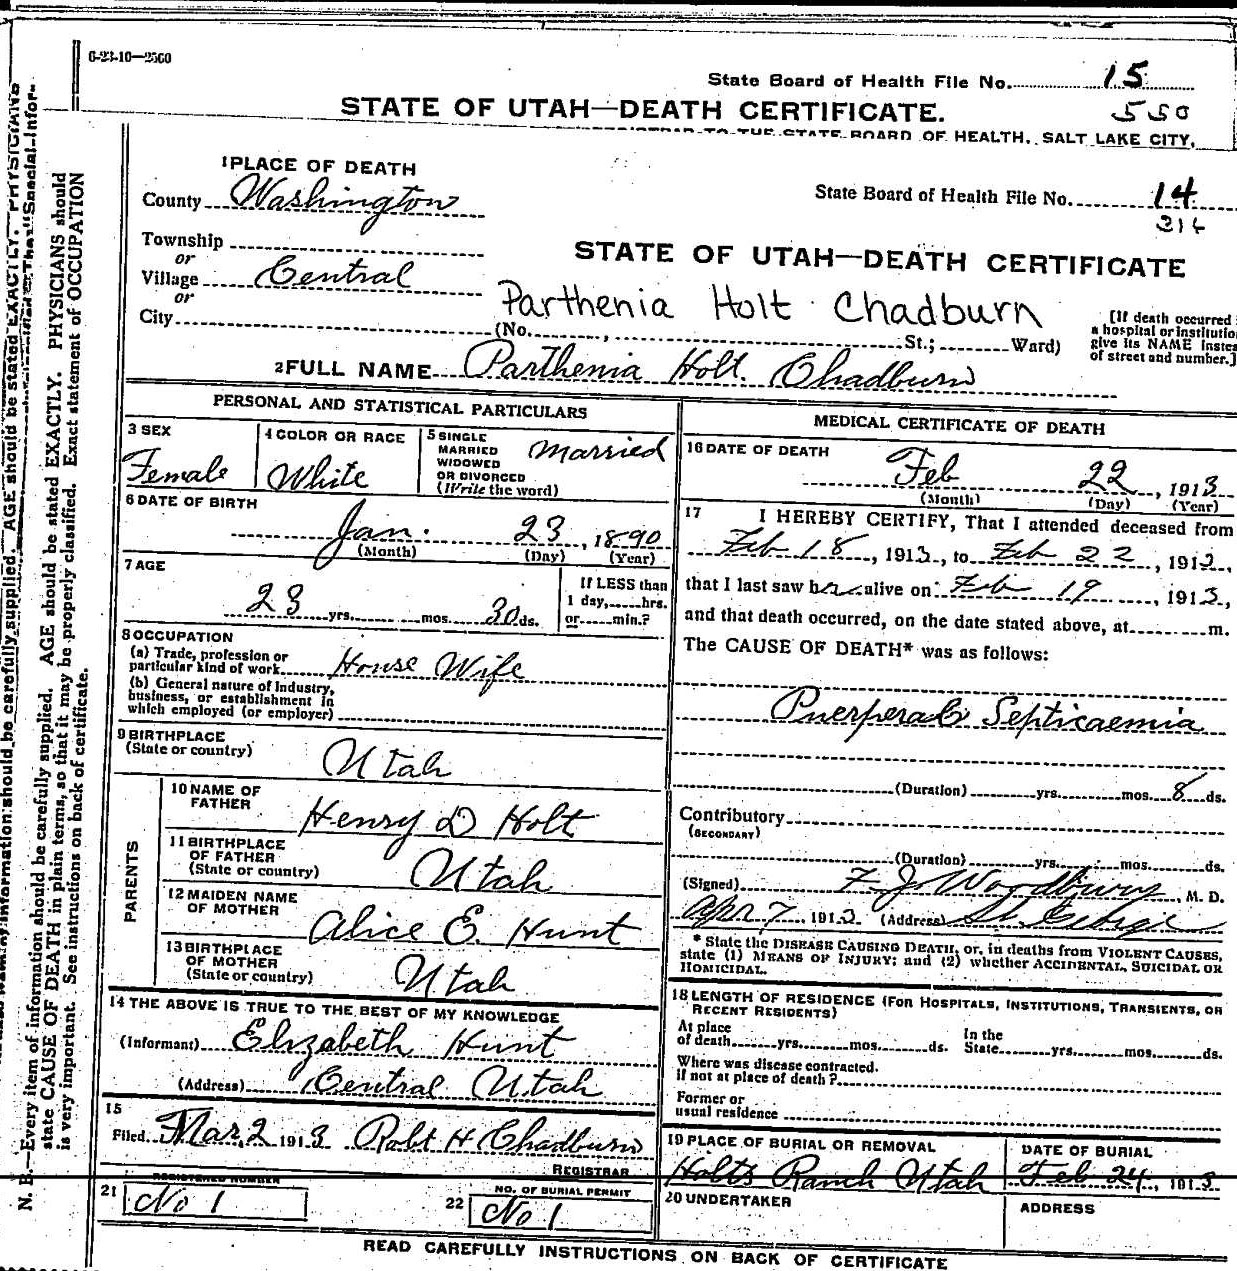 6-23-10—2500
State Board of Health File No. 15
550
STATE OF UTAH—DEATH CERTIFICATE.
TO THE STATE BOARD OF HEALTH, SALT LAKE CITY,
1 PLACE OF DEATH
County Washington
State Board of Health File No. 14
316
Township
or
Village Central
or
City
STATE OF UTAH—DEATH CERTIFICATE
Parthenia Holt Chadburn
(No. , St.; Ward)
[If death occurred
a hospital or institutio
give its NAME instea
of street and number.]
2 FULL NAME Parthenia Holt. Chadburn
PERSONAL AND STATISTICAL PARTICULARS
3 SEX
Female
4 COLOR OR RACE
White
5 SINGLE
MARRIED
WIDOWED
OR DIVORCED
(Write the word)
Married
6 DATE OF BIRTH
Jan. 23, 1890
(Month) (Day) (Year)
7 AGE
23 yrs. mos. 30 ds.
If LESS than
1 day, hrs.
or min.?
8 OCCUPATION
(a) Trade, profession or
particular kind of work House Wife
(b) General nature of Industry,
business, or establishment in
which employed (or employer)
9 BIRTHPLACE
(State or country) Utah
PARENTS
10 NAME OF
FATHER Henry D Holt
11 BIRTHPLACE
OF FATHER
(State or country) Utah
12 MAIDEN NAME
OF MOTHER Alice E. Hunt
13 BIRTHPLACE
OF MOTHER
(State or country) Utah
14 THE ABOVE IS TRUE TO THE BEST OF MY KNOWLEDGE
(Informant) Elizabeth Hunt
(Address) Central Utah
15
Filed Mar 2 1913 Robt H Chadburn
REGISTRAR
REGISTERED NUMBER
21 No 1
NO. OF BURIAL PERMIT
22 No 1
MEDICAL CERTIFICATE OF DEATH
16 DATE OF DEATH
Feb 22, 1913
(Month) (Day) (Year)
17 I HEREBY CERTIFY, That I attended deceased from
Feb 18, 1913, to Feb 22, 1913,
that I last saw her alive on Feb 19, 1913,
and that death occurred, on the date stated above, at m.
The CAUSE OF DEATH* was as follows:
Puerperal Septicaemia
(Duration) yrs. mos. 8 ds.
Contributory
(SECONDARY)
(Duration) yrs. mos. ds.
(Signed) F. J. Woodbury, M. D.
Apr 7, 1913 (Address) St George
* State the DISEASE CAUSING DEATH, or, in deaths from VIOLENT CAUSES,
state (1) MEANS OF INJURY; and (2) whether ACCIDENTAL, SUICIDAL OR
HOMICIDAL.
18 LENGTH OF RESIDENCE (FOR HOSPITALS, INSTITUTIONS, TRANSIENTS, OR
RECENT RESIDENTS)
At place
of death yrs. mos. ds.
In the
State yrs. mos. ds.
Where was disease contracted.
if not at place of death?
Former or
usual residence
19 PLACE OF BURIAL OR REMOVAL
Holts Ranch Utah
DATE OF BURIAL
Feb 24, 1913
20 UNDERTAKER
ADDRESS
READ CAREFULLY INSTRUCTIONS ON BACK OF CERTIFICATE
information should be carefully supplied. AGE should be stated EXACTLY. PHYSICIANS
N. B.—Every item of information should be carefully supplied. AGE should be stated EXACTLY. PHYSICIANS should
state CAUSE OF DEATH in plain terms, so that it may be properly classified. Exact statement of OCCUPATION
is very important. See instructions on back of certificate.